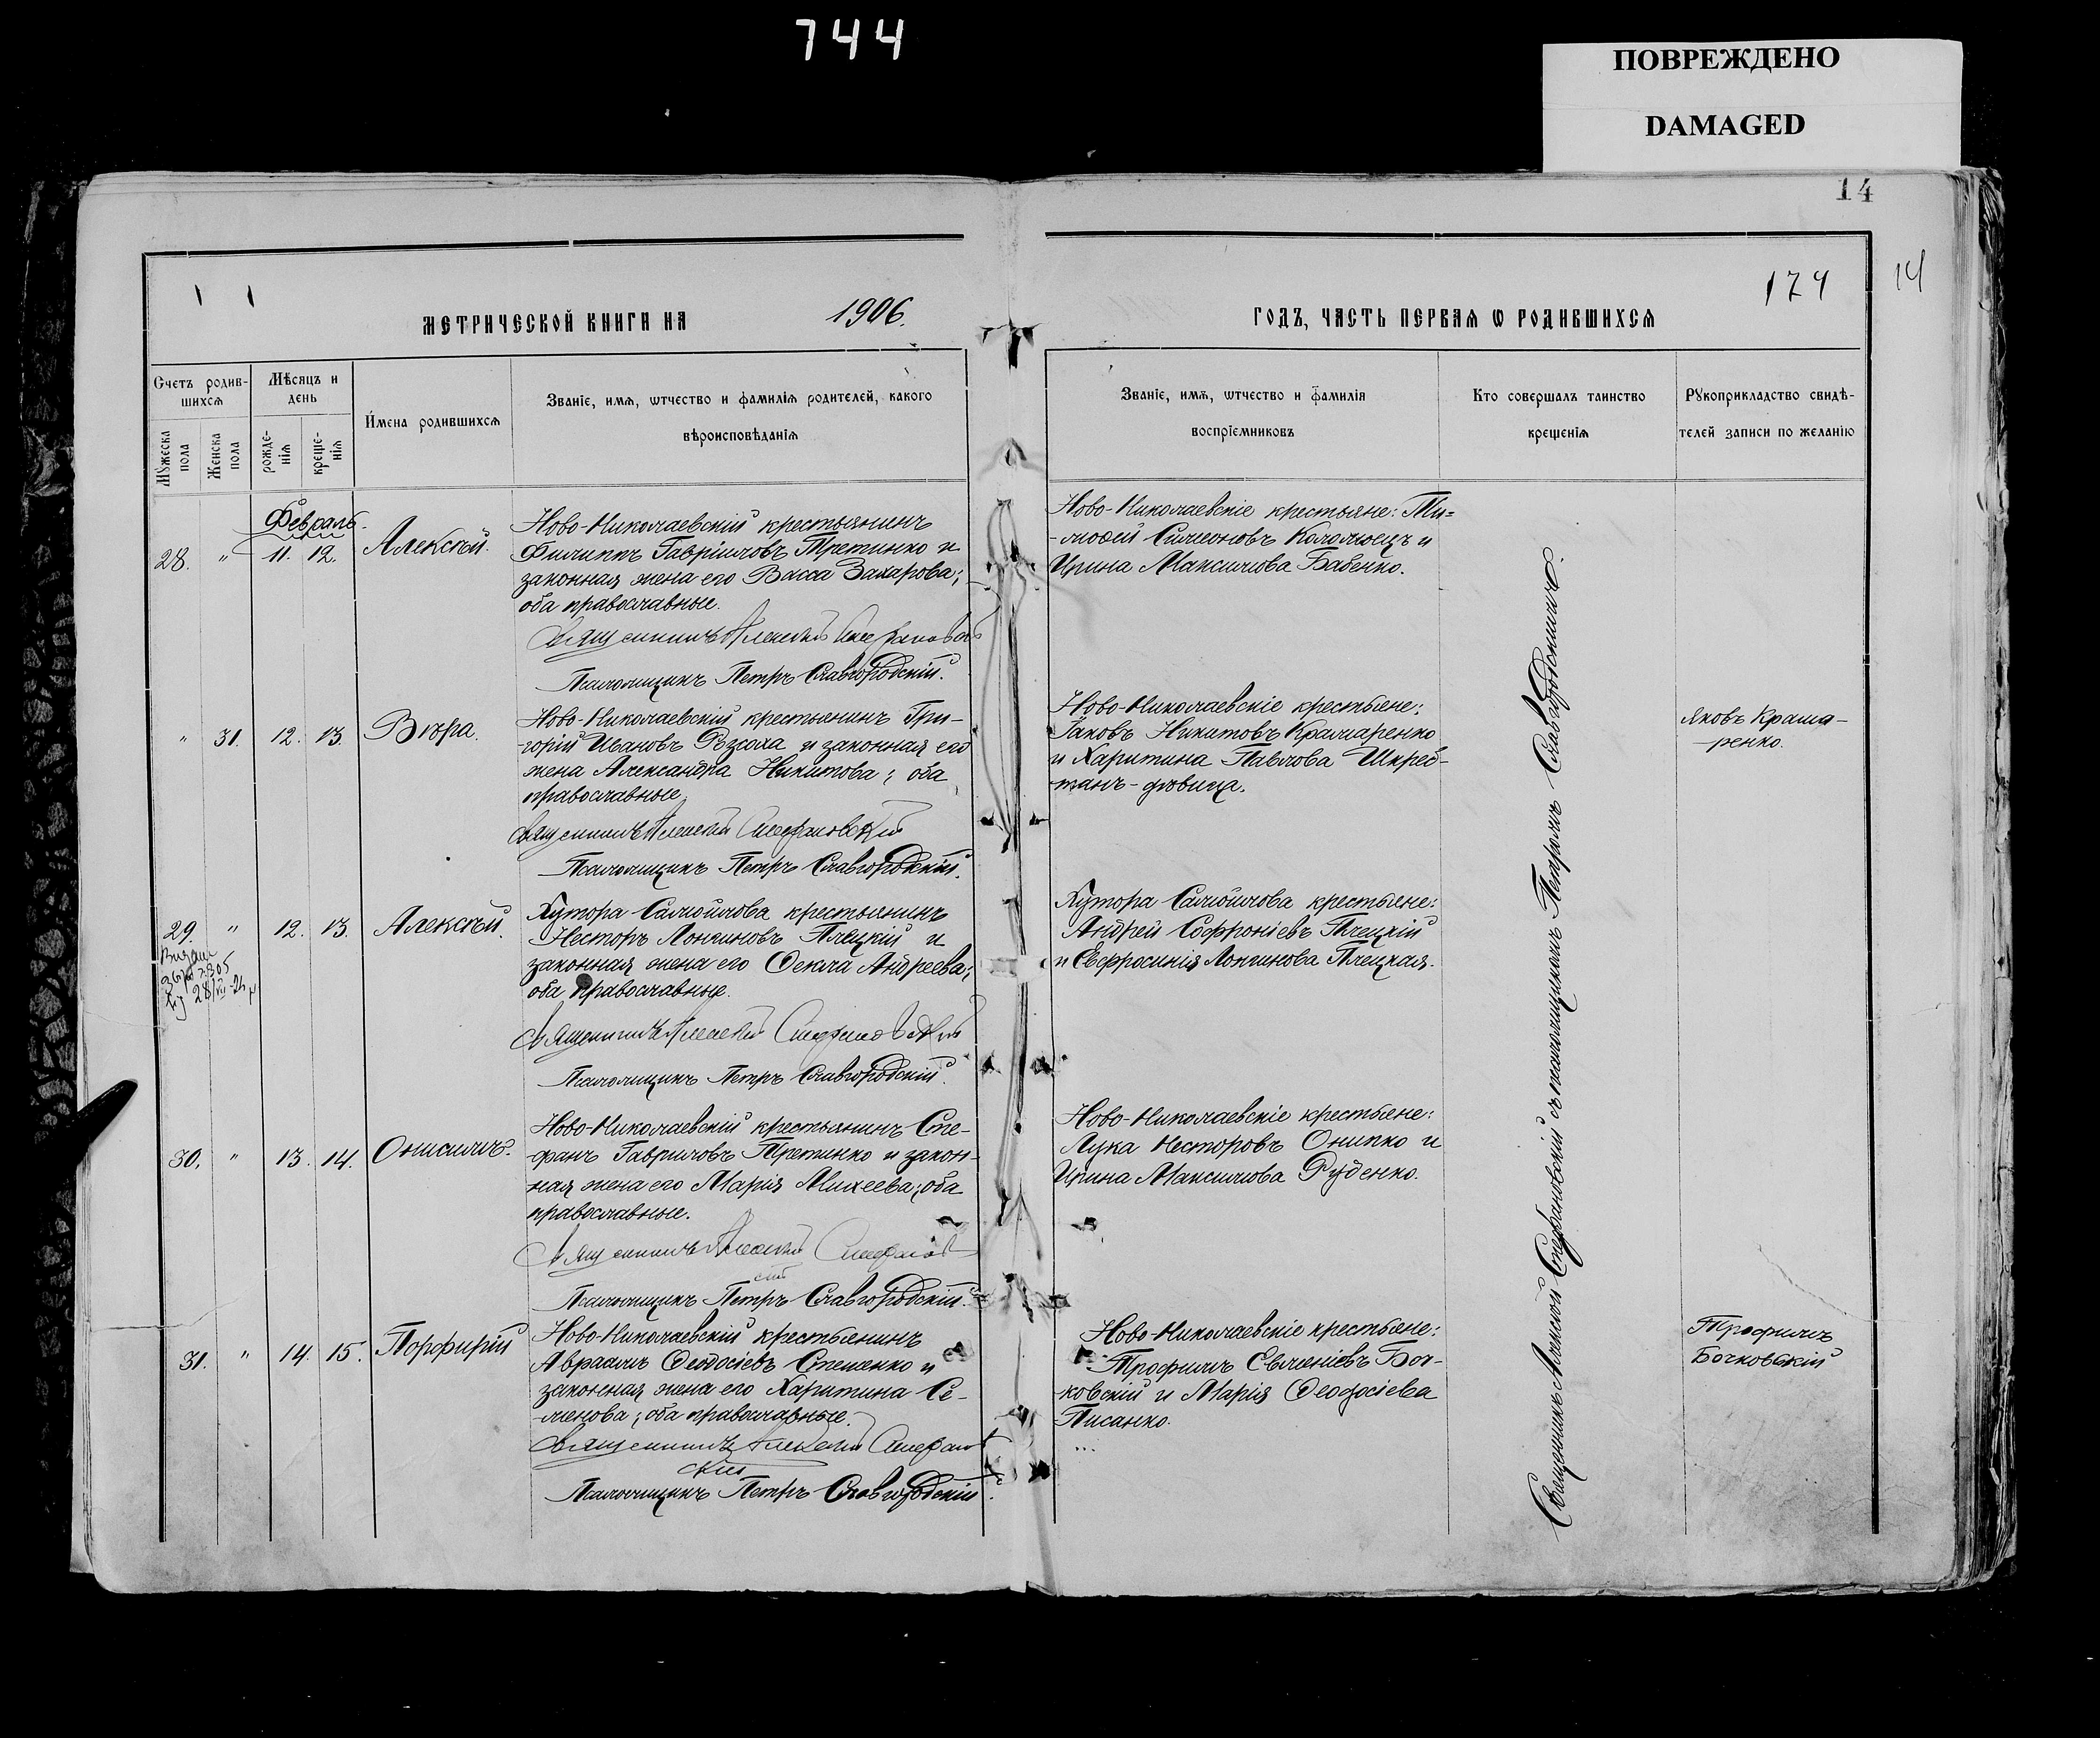 744
ПОВРЕЖДЕНО
DAMAGED
14
174
14
МЕТРИЧЕСКОЙ КНИГИ НА 1906.
ГОДЪ, ЧАСТЬ ПЕРВАЯ Ѡ РОДИВШИХСЯ
Счетъ родив-
шихся
Мꙋжеска пола
Женска пола
Мѣсяцъ и
день
рожде-
нія
креще-
нія
Имена родившихся
Званіе, имя, ѡтчество и фамилія родителей, какого
вѣроисповѣданія
Званіе, имя, ѡтчество и фамилія
воспріемниковъ
Кто совершалъ таинство
крещенія
Рꙋкоприкладство свидѣ-
телей записи по желанію
Февраль.
28. " 11. 12. Алексѣй.
Ново-Николаевскій крестьянинъ
Филиппъ Гавріиловъ Третинко и
законная жена его Васса Захарова;
оба православные.
Священникъ Алексѣй Стефановскій
Псаломщикъ Петръ Славгородскій.
Ново-Николаевскіе крестьяне: Ти-
-моѳей Симеоновъ Коломоецъ и
Ирина Максимова Бабенко.
" 31. 12. 13. Вѣра.
Ново-Николаевскій крестьянинъ Гри-
-горій Ивановъ и законная его
жена Александра Никитова; оба
православные.
Священникъ Алексѣй Стефановскій
Псаломщикъ Петръ Славгородскій.
Ново-Николаевскіе крестьяне:
Іаковъ Никитовъ Крамаренко
и Харитина Павлова Шкред-
-танъ-дѣвица.
Яковъ Крама-
-ренко.
29. " 12. 13. Алексѣй.
28/VII-24
Хутора Самойлова крестьянинъ
Несторъ Лонгиновъ Плецкій и
законная жена его Ѳекла Андреева;
оба православные.
Священникъ Алексѣй Стефановскій
Псаломщикъ Петръ Славгородскій.
Хутора Самойлова крестьяне:
Андрей Софроніевъ Плецкій
и Евфросинія Лонгинова Плецкая.
30. " 13. 14. Онисимъ.
Ново-Николаевскій крестьянинъ Сте-
-фанъ Гавриловъ Третинко и закон-
-ная жена его Марія Михеева; оба
православные.
Священникъ Алексѣй Стефанов
скій
Псаломщикъ Петръ Славгородскій.
Ново-Николаевскіе крестьяне:
Лука Несторовъ Онипко и
Ирина Максимова Руденко.
31. " 14. 15. Порфирій
Ново-Николаевскій крестьянинъ
Авраамъ Ѳеодосіевъ Степенко и
законная жена его Харитина Се-
-менова; оба православные.
Священникъ Алексѣй Стефанов
скій
Псаломщикъ Петръ Славгородскій.
Ново-Николаевскіе крестьяне:
Трофимъ Евменіевъ Боч-
-ковскій и Марія Ѳеодосіева
Писанко.
Трофимъ
Бочковскій
Священникъ Алексѣй Стефановскій съ псаломщикомъ Петромъ Славгородскимъ.